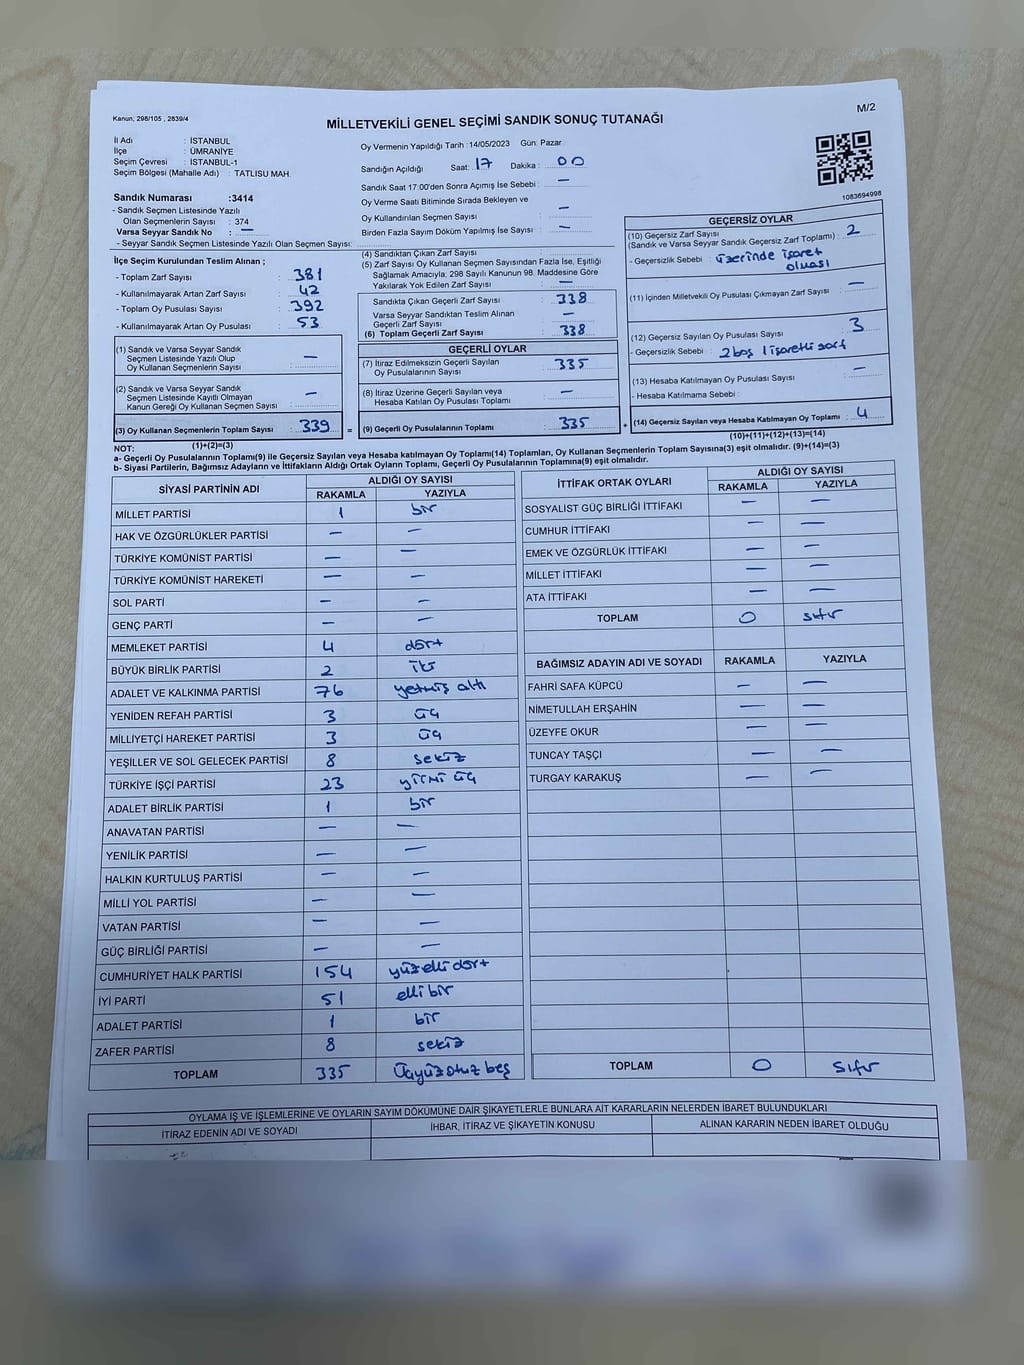 Kanun; 298/105 , 2839/4
M/2
MİLLETVEKİLİ GENEL SEÇİMİ SANDIK SONUÇ TUTANAĞI
İl Adı : İSTANBUL
İlçe : ÜMRANİYE
Seçim Çevresi : İSTANBUL-1
Seçim Bölgesi (Mahalle Adı) : TATLISU MAH.
Sandık Numarası :3414
- Sandık Seçmen Listesinde Yazılı
Olan Seçmenlerin Sayısı : 374
Varsa Seyyar Sandık No : —
- Seyyar Sandık Seçmen Listesinde Yazılı Olan Seçmen Sayısı:
Oy Vermenin Yapıldığı Tarih : 14/05/2023 Gün: Pazar
Sandığın Açıldığı Saat: 17 Dakika : 00
Sandık Saat 17:00'den Sonra Açımış İse Sebebi : —
Oy Verme Saati Bitiminde Sırada Bekleyen ve
Oy Kullandırılan Seçmen Sayısı : —
Birden Fazla Sayım Döküm Yapılmış İse Sayısı : —
1083694998
İlçe Seçim Kurulundan Teslim Alınan ;
- Toplam Zarf Sayısı : 381
- Kullanılmayarak Artan Zarf Sayısı : 42
- Toplam Oy Pusulası Sayısı : 392
- Kullanılmayarak Artan Oy Pusulası : 53
(1) Sandık ve Varsa Seyyar Sandık
Seçmen Listesinde Yazılı Olup
Oy Kullanan Seçmenlerin Sayısı : —
(2) Sandık ve Varsa Seyyar Sandık
Seçmen Listesinde Kayıtlı Olmayan
Kanun Gereği Oy Kullanan Seçmen Sayısı : —
(3) Oy Kullanan Seçmenlerin Toplam Sayısı : 339 =
(1)+(2)=(3)
(4) Sandıktan Çıkan Zarf Sayısı :
(5) Zarf Sayısı Oy Kullanan Seçmen Sayısından Fazla İse, Eşitliği
Sağlamak Amacıyla; 298 Sayılı Kanunun 98. Maddesine Göre
Yakılarak Yok Edilen Zarf Sayısı : —
Sandıkta Çıkan Geçerli Zarf Sayısı : 338
Varsa Seyyar Sandıktan Teslim Alınan
Geçerli Zarf Sayısı : —
(6) Toplam Geçerli Zarf Sayısı : 338
GEÇERLİ OYLAR
(7) İtiraz Edilmeksizin Geçerli Sayılan
Oy Pusulalarının Sayısı : 335
(8) İtiraz Üzerine Geçerli Sayılan veya
Hesaba Katılan Oy Pusulası Toplamı : —
(9) Geçerli Oy Pusulalarının Toplamı : 335 +
GEÇERSİZ OYLAR
(10) Geçersiz Zarf Sayısı
(Sandık ve Varsa Seyyar Sandık Geçersiz Zarf Toplamı) : 2
- Geçersizlik Sebebi : üzerinde işaret
olması
(11) İçinden Milletvekili Oy Pusulası Çıkmayan Zarf Sayısı : —
(12) Geçersiz Sayılan Oy Pusulası Sayısı : 3
- Geçersizlik Sebebi : 2 boş 1 işaretli
(13) Hesaba Katılmayan Oy Pusulası Sayısı : —
- Hesaba Katılmama Sebebi :
(14) Geçersiz Sayılan veya Hesaba Katılmayan Oy Toplamı : 4
(10)+(11)+(12)+(13)=(14)
NOT:
a- Geçerli Oy Pusulalarının Toplamı(9) ile Geçersiz Sayılan veya Hesaba katılmayan Oy Toplamı(14) Toplamları, Oy Kullanan Seçmenlerin Toplam Sayısına(3) eşit olmalıdır. (9)+(14)=(3)
b- Siyasi Partilerin, Bağımsız Adayların ve İttifakların Aldığı Ortak Oyların Toplamı, Geçerli Oy Pusulalarının Toplamına(9) eşit olmalıdır.
SİYASİ PARTİNİN ADI ALDIĞI OY SAYISI
RAKAMLA YAZIYLA
MİLLET PARTİSİ 1 bir
HAK VE ÖZGÜRLÜKLER PARTİSİ — —
TÜRKİYE KOMÜNİST PARTİSİ — —
TÜRKİYE KOMÜNİST HAREKETİ — —
SOL PARTİ — —
GENÇ PARTİ — —
MEMLEKET PARTİSİ 4 dört
BÜYÜK BİRLİK PARTİSİ 2 iki
ADALET VE KALKINMA PARTİSİ 76 yetmiş altı
YENİDEN REFAH PARTİSİ 3 üç
MİLLİYETÇİ HAREKET PARTİSİ 3 üç
YEŞİLLER VE SOL GELECEK PARTİSİ 8 sekiz
TÜRKİYE İŞÇİ PARTİSİ 23 yirmi üç
ADALET BİRLİK PARTİSİ 1 bir
ANAVATAN PARTİSİ — —
YENİLİK PARTİSİ — —
HALKIN KURTULUŞ PARTİSİ — —
MİLLİ YOL PARTİSİ — —
VATAN PARTİSİ — —
GÜÇ BİRLİĞİ PARTİSİ — —
CUMHURİYET HALK PARTİSİ 154 yüz elli dört
İYİ PARTİ 51 elli bir
ADALET PARTİSİ 1 bir
ZAFER PARTİSİ 8 sekiz
TOPLAM 335 Üçyüz otuz beş
İTTİFAK ORTAK OYLARI ALDIĞI OY SAYISI
RAKAMLA YAZIYLA
SOSYALİST GÜÇ BİRLİĞİ İTTİFAKI — —
CUMHUR İTTİFAKI — —
EMEK VE ÖZGÜRLÜK İTTİFAKI — —
MİLLET İTTİFAKI — —
ATA İTTİFAKI — —
TOPLAM 0 sıfır
BAĞIMSIZ ADAYIN ADI VE SOYADI RAKAMLA YAZIYLA
FAHRİ SAFA KÜPCÜ — —
NİMETULLAH ERŞAHİN — —
ÜZEYFE OKUR — —
TUNCAY TAŞÇI — —
TURGAY KARAKUŞ — —
TOPLAM 0 Sıfır
OYLAMA İŞ VE İŞLEMLERİNE VE OYLARIN SAYIM DÖKÜMÜNE DAİR ŞİKAYETLERLE BUNLARA AİT KARARLARIN NELERDEN İBARET BULUNDUKLARI
İTİRAZ EDENİN ADI VE SOYADI İHBAR, İTİRAZ VE ŞİKAYETİN KONUSU ALINAN KARARIN NEDEN İBARET OLDUĞU